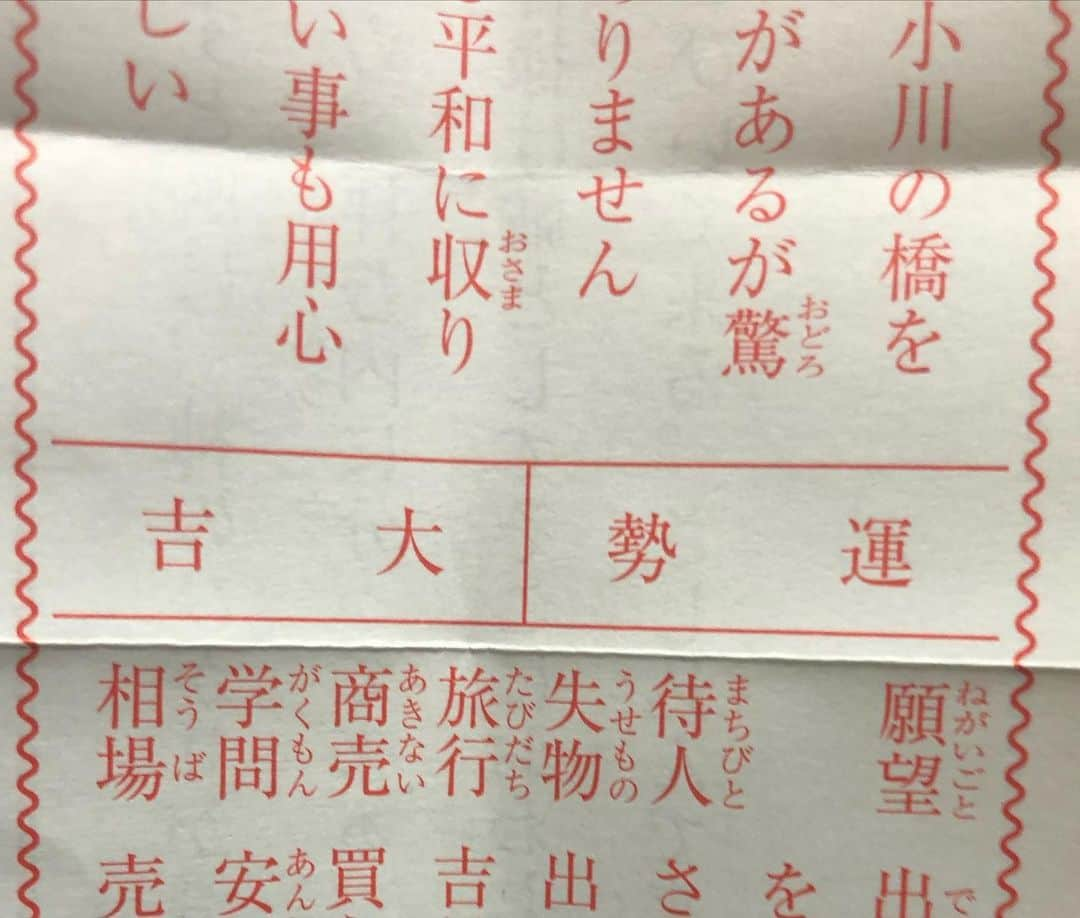 小川の橋を
があるが驚
おどろ
りません
平和に収り
おさま
い事も用心
しい
運勢
大吉
願望
ねがいごと
出
で
を
待人
まちびと
さ
失物
うせもの
出
旅行
たびだち
吉
商売
あきない
買
学問
がくもん
安
あん
相場
そうば
売